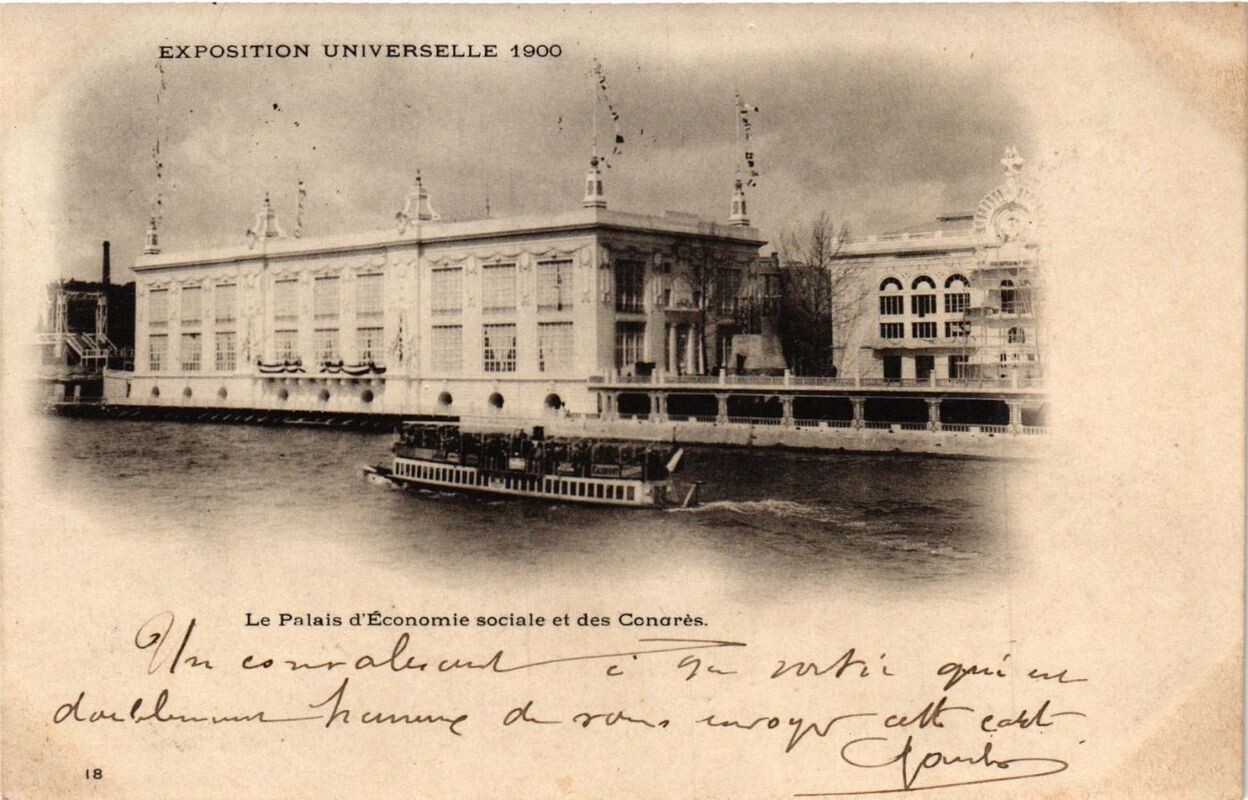 EXPOSITION UNIVERSELLE 1900
Le Palais d'Économie sociale et des Congrès.
Un convalescent à sa sortie qui est
doublement heureux de vous envoyer cette carte
18